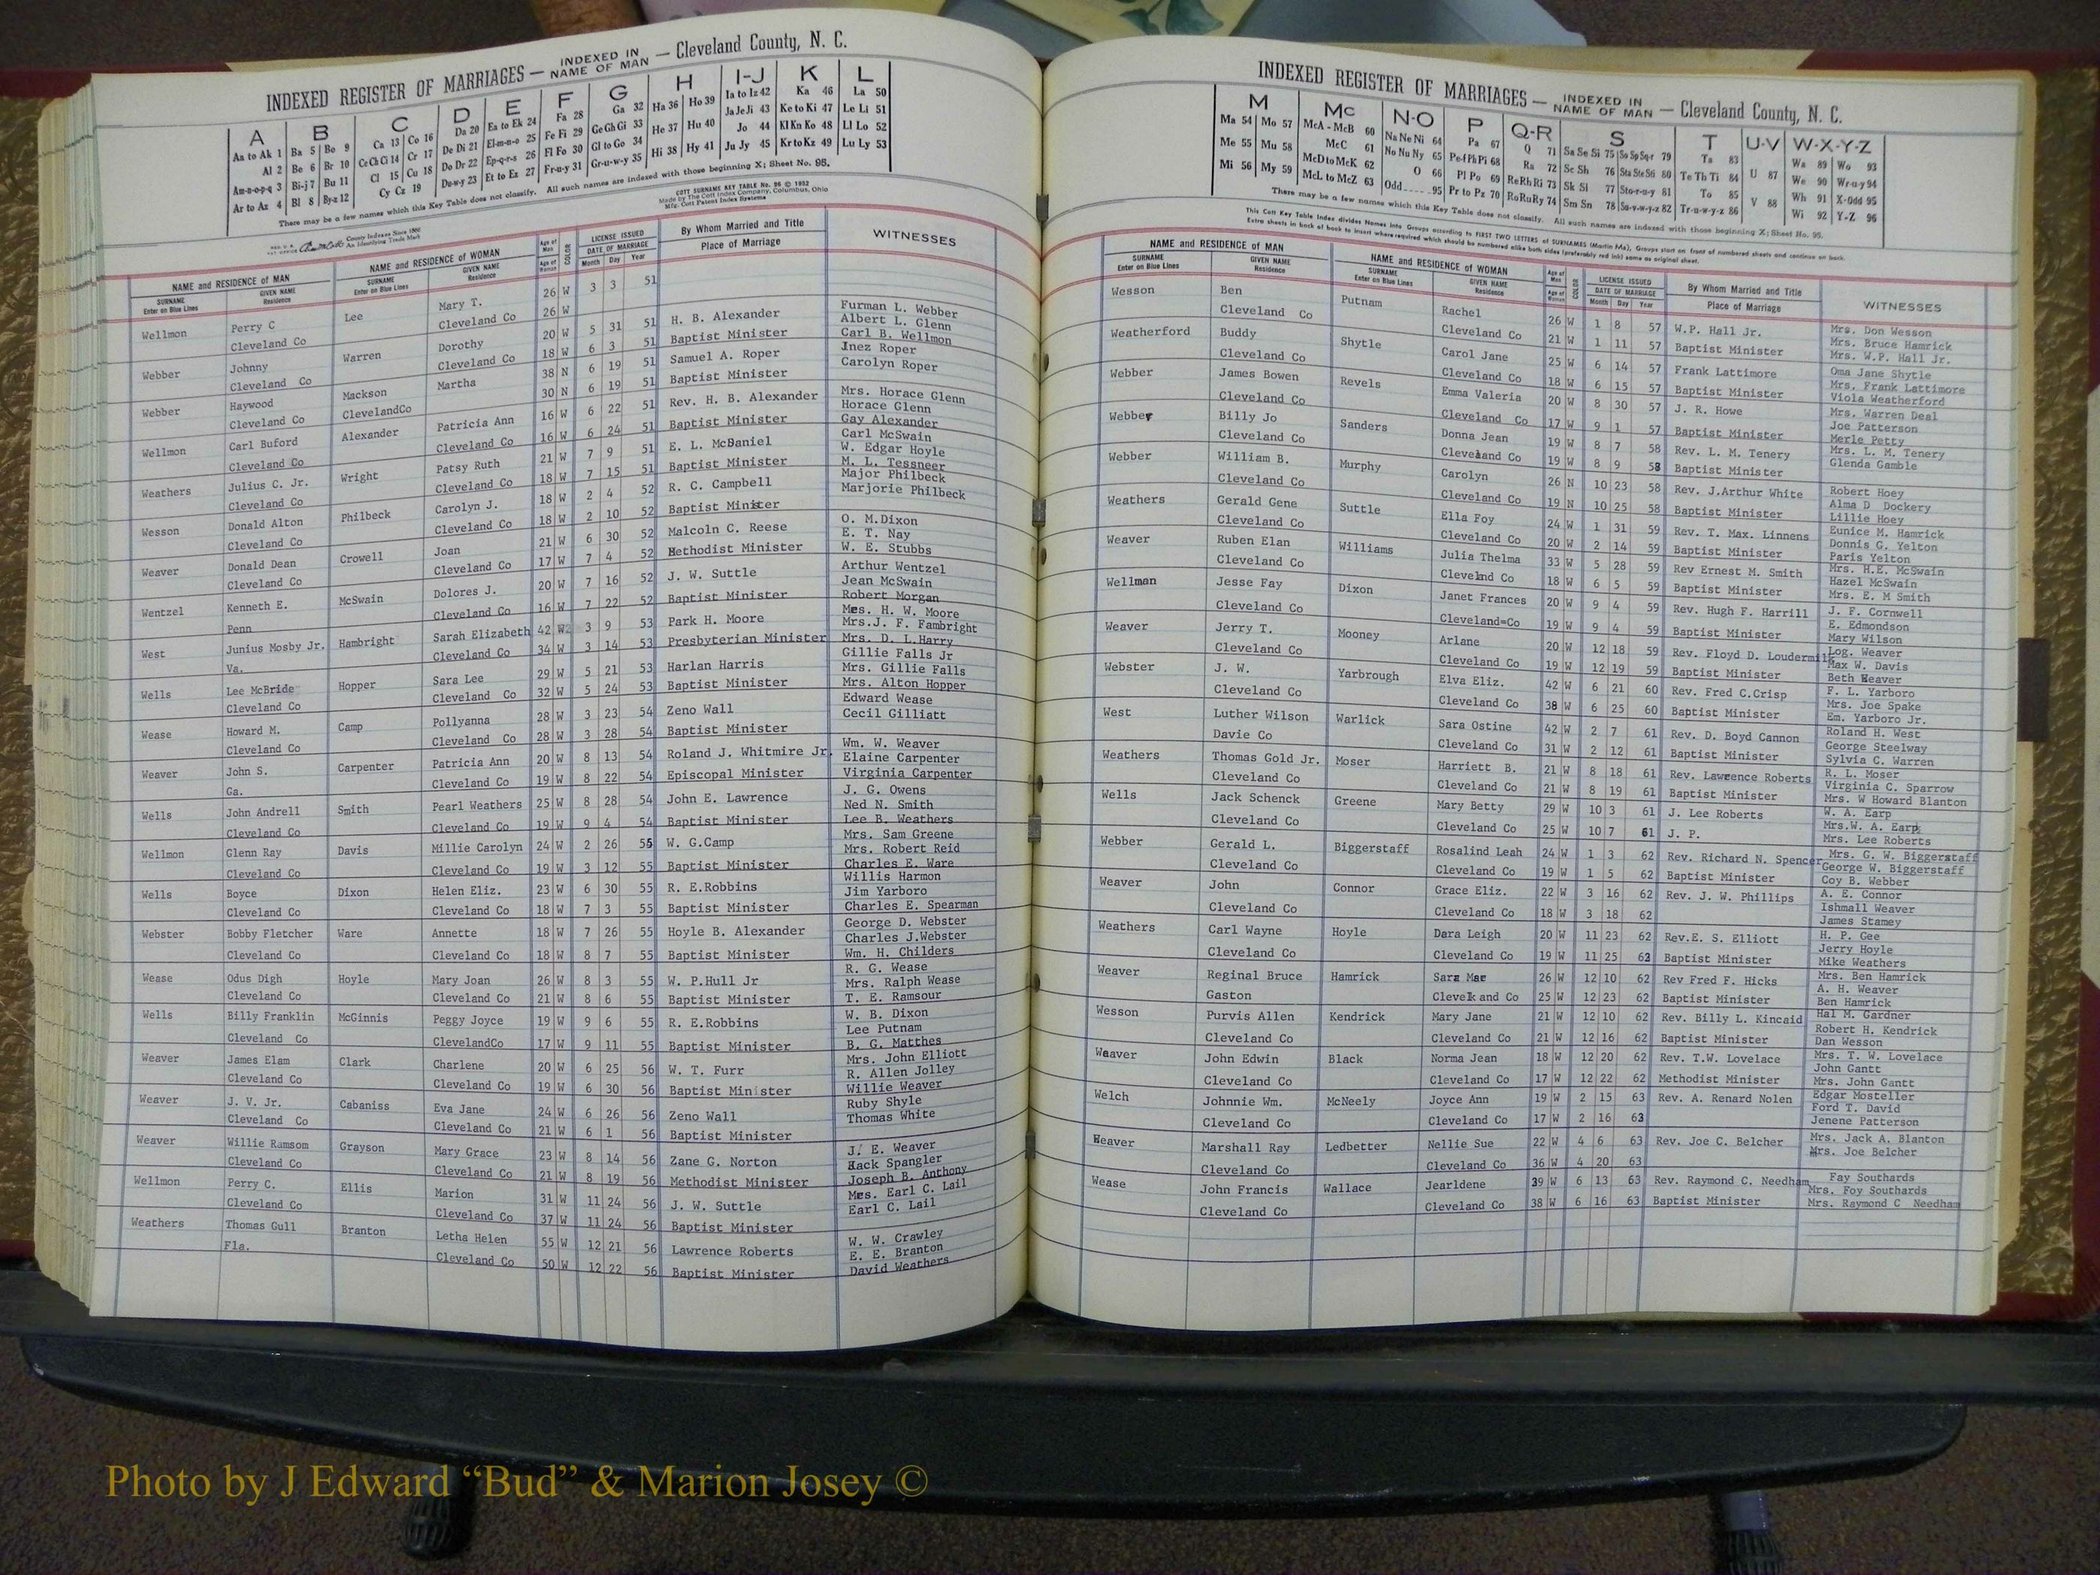 INDEXED REGISTER OF MARRIAGES — INDEXED IN NAME OF MAN — Cleveland County, N. C.
A B C D E F G H I-J K L
Aa to Ak 1 Ba 5 Be 9 Ca 13 Co 16 Da 20 Ea to Ek 24 Fa 28 Ga 32 Ha 36 Ho 39 Ia to Iz 42 Ka 46 La 50
Al 2 Be 6 Br 10 Ce Ch Ci 14 Cr 17 De Di 21 El-m-n-o 25 Fe Fi 29 Ge Gh Gi 33 He 37 Hu 40 Ja Je Ji 43 Ke to Ki 47 Le Li 51
Am-n-o-p-q 3 Bi-j 7 Bu 11 Cl 15 Cu 18 Do Dr 22 Ep-q-r-s 26 Fl Fo 30 Gl to Go 34 Hi 38 Hy 41 Jo 44 Kl Kn Ko 48 Ll Lo 52
Ar to Az 4 Bl 8 By-z 12 Cy Cz 19 Du-w-y 23 Et to Ez 27 Fr-u-y 31 Gr-u-w-y 35 Ju Jy 45 Kr to Kz 49 Lu Ly 53
There may be a few names which this Key Table does not classify. All such names are indexed with those beginning X; Sheet No. 95.
COTT SURNAME KEY TABLE No. 96 © 1952
Made by The Cott Index Company, Columbus, Ohio
Mfg. Cott Patent Index Systems
County Indexes Since 1888
An Identifying Trade Mark
NAME and RESIDENCE of MAN NAME and RESIDENCE of WOMAN Age of Man Age of Woman COLOR LICENSE ISSUED DATE OF MARRIAGE By Whom Married and Title Place of Marriage WITNESSES
SURNAME Enter on Blue Lines GIVEN NAME Residence SURNAME Enter on Blue Lines GIVEN NAME Residence Month Day Year
Wellmon Perry C Lee Mary T. 26 W 3 3 51
Cleveland Co Cleveland Co 26 W
Webber Johnny Warren Dorothy 20 W 5 31 51 H. B. Alexander Furman L. Webber
Albert L. Glenn
Cleveland Co Cleveland Co 18 W 6 3 51 Baptist Minister Carl B. Wellmon
Webber Haywood Mackson Martha 38 N 6 19 51 Samuel A. Roper Inez Roper
Cleveland Co ClevelandCo 30 N 6 19 51 Baptist Minister Carolyn Roper
Wellmon Carl Buford Alexander Patricia Ann 16 W 6 22 51 Rev. H. B. Alexander Mrs. Horace Glenn
Horace Glenn
Cleveland Co Cleveland Co 16 W 6 24 51 Baptist Minister Gay Alexander
Weathers Julius C. Jr. Wright Patsy Ruth 21 W 7 9 51 E. L. McDaniel Carl McSwain
W. Edgar Hoyle
Cleveland Co Cleveland Co 18 W 7 15 51 Baptist Minister M. L. Tessneer
Wesson Donald Alton Philbeck Carolyn J. 18 W 2 4 52 R. C. Campbell Major Philbeck
Cleveland Co Cleveland Co 18 W 2 10 52 Baptist Minister Marjorie Philbeck
Weaver Donald Dean Crowell Joan 21 W 6 30 52 Malcoln C. Reese O. M.Dixon
E. T. Nay
Cleveland Co Cleveland Co 17 W 7 4 52 Methodist Minister W. E. Stubbs
Wentzel Kenneth E. McSwain Dolores J. 20 W 7 16 52 J. W. Suttle Arthur Wentzel
Jean McSwain
Penn Cleveland Co 16 W 7 22 52 Baptist Minister Robert Morgan
West Junius Mosby Jr. Hambright Sarah Elizabeth 42 W 3 9 53 Park H. Moore Mrs. H. W. Moore
Mrs.J. F. Fambright
Va. Cleveland Co 34 W 3 14 53 Presbyterian Minister Mrs. D. L.Harry
Wells Lee McBride Hopper Sara Lee 29 W 5 21 53 Harlan Harris Gillie Falls Jr
Mrs. Gillie Falls
Cleveland Co Cleveland Co 32 W 5 24 53 Baptist Minister Mrs. Alton Hopper
Wease Howard M. Camp Pollyanna 28 W 3 23 54 Zeno Wall Edward Wease
Cleveland Co Cleveland Co 28 W 3 28 54 Baptist Minister Cecil Gilliatt
Weaver John S. Carpenter Patricia Ann 20 W 8 13 54 Roland J. Whitmire Jr. Wm. W. Weaver
Elaine Carpenter
Ga. Cleveland Co 19 W 8 22 54 Episcopal Minister Virginia Carpenter
Wells John Andrell Smith Pearl Weathers 25 W 8 28 54 John E. Lawrence J. G. Owens
Ned N. Smith
Cleveland Co Cleveland Co 19 W 9 4 54 Baptist Minister Lee B. Weathers
Wellmon Glenn Ray Davis Millie Carolyn 24 W 2 26 55 W. G.Camp Mrs. Sam Greene
Mrs. Robert Reid
Cleveland Co Cleveland Co 19 W 3 12 55 Baptist Minister Charles E. Ware
Wells Boyce Dixon Helen Eliz. 23 W 6 30 55 R. E.Robbins Willis Harmon
Jim Yarboro
Cleveland Co Cleveland Co 18 W 7 3 55 Baptist Minister Charles E. Spearman
Webster Bobby Fletcher Ware Annette 18 W 7 26 55 Hoyle B. Alexander George D. Webster
Charles J.Webster
Cleveland Co Cleveland Co 18 W 8 7 55 Baptist Minister Wm. H. Childers
Wease Odus Digh Hoyle Mary Joan 26 W 8 3 55 W. P.Hull Jr R. G. Wease
Mrs. Ralph Wease
Cleveland Co Cleveland Co 21 W 8 6 55 Baptist Minister T. E. Ramsour
Wells Billy Franklin McGinnis Peggy Joyce 19 W 9 6 55 R. E.Robbins W. B. Dixon
Lee Putnam
Cleveland Co ClevelandCo 17 W 9 11 55 Baptist Minister B. G. Matthes
Weaver James Elam Clark Charlene 20 W 6 25 56 W. T. Furr Mrs. John Elliott
R. Allen Jolley
Cleveland Co Cleveland Co 19 W 6 30 56 Baptist Minister Willie Weaver
Weaver J. V. Jr. Cabaniss Eva Jane 24 W 6 26 56 Zeno Wall Ruby Shyle
Cleveland Co Cleveland Co 21 W 6 1 56 Baptist Minister Thomas White
Weaver Willie Ramsom Grayson Mary Grace 23 W 8 14 56 Zane G. Norton J. E. Weaver
Hack Spangler
Cleveland Co Cleveland Co 21 W 8 19 56 Methodist Minister Joseph B. Anthony
Wellmon Perry C. Ellis Marion 31 W 11 24 56 J. W. Suttle Mrs. Earl C. Lail
Cleveland Co Cleveland Co 37 W 11 24 56 Baptist Minister Earl C. Lail
Weathers Thomas Gull Branton Letha Helen 55 W 12 21 56 Lawrence Roberts W. W. Crawley
E. E. Branton
Fla. Cleveland Co 50 W 12 22 56 Baptist Minister David Weathers
INDEXED REGISTER OF MARRIAGES — INDEXED IN NAME OF MAN — Cleveland County, N. C.
M Mc N-O P Q-R S T U-V W-X-Y-Z
Ma 54 Mo 57 McA - McB 60 Na Ne Ni 64 Pa 67 Q 71 Sa Se Si 75 So Sp Sq-r 79 Ta 83 U 87 Wa 89 Wo 93
Me 55 Mu 58 McC 61 No Nu Ny 65 Pe-f Ph Pi 68 Ra 72 Sc Sh 76 Sta Ste Sti 80 Te Th Ti 84 V 88 We 90 Wr-u-y 94
Mi 56 My 59 McD to McK 62 O 66 Pl Po 69 Re Rh Ri 73 Sk Sl 77 Sto-r-u-y 81 To 85 Wh 91 X-Odd 95
McL to McZ 63 Odd 95 Pr to Pz 70 Ro Ru Ry 74 Sm Sn 78 Su-v-w-y-z 82 Tr-u-w-y-z 86 Wi 92 Y-Z 96
There may be a few names which this Key Table does not classify. All such names are indexed with those beginning X; Sheet No. 95.
This Cott Key Table Index divides Names into Groups according to FIRST TWO LETTERS of SURNAMES (Martin Ma), Groups start on front of numbered sheets and continue on back.
Extra sheets in back of book to insert where required which should be numbered alike both sides (preferably red ink) same as original sheet.
NAME and RESIDENCE OF MAN NAME and RESIDENCE of WOMAN Age of Man Age of Woman COLOR LICENSE ISSUED DATE OF MARRIAGE By Whom Married and Title Place of Marriage WITNESSES
SURNAME Enter on Blue Lines GIVEN NAME Residence SURNAME Enter on Blue Lines GIVEN NAME Residence Month Day Year
Wesson Ben Putnam Rachel 26 W 1 8 57 W.P. Hall Jr. Mrs. Don Wesson
Mrs. Bruce Hamrick
Cleveland Co Cleveland Co 21 W 1 11 57 Baptist Minister Mrs. W.P. Hall Jr.
Weatherford Buddy Shytle Carol Jane 25 W 6 14 57 Frank Lattimore Oma Jane Shytle
Mrs. Frank Lattimore
Cleveland Co Cleveland Co 18 W 6 15 57 Baptist Minister Viola Weatherford
Webber James Bowen Revels Emma Valeria 20 W 8 30 57 J. R. Howe Mrs. Warren Deal
Joe Patterson
Cleveland Co Cleveland Co 17 W 9 1 57 Baptist Minister Merle Petty
Webber Billy Jo Sanders Donna Jean 19 W 8 7 58 Rev. L. M. Tenery Mrs. L. M. Tenery
Cleveland Co Cleveland Co 19 W 8 9 58 Baptist Minister Glenda Gamble
Webber William B. Murphy Carolyn 26 N 10 23 58 Rev. J.Arthur White Robert Hoey
Alma D Dockery
Cleveland Co Cleveland Co 19 N 10 25 58 Baptist Minister Lillie Hoey
Weathers Gerald Gene Suttle Ella Foy 24 W 1 31 59 Rev. T. Max. Linnens Eunice M. Hamrick
Donnis G. Yelton
Cleveland Co Cleveland Co 20 W 2 14 59 Baptist Minister Paris Yelton
Weaver Ruben Elan Williams Julia Thelma 33 W 5 28 59 Rev Ernest M. Smith Mrs. H.E. McSwain
Hazel McSwain
Cleveland Co Cleveland Co 18 W 6 5 59 Baptist Minister Mrs. E. M Smith
Wellman Jesse Fay Dixon Janet Frances 20 W 9 4 59 Rev. Hugh F. Harrill J. F. Cornwell
E. Edmondson
Cleveland Co Cleveland=Co 19 W 9 4 59 Baptist Minister Mary Wilson
Weaver Jerry T. Mooney Arlane 20 W 12 18 59 Rev. Floyd D. Loudermilk Log. Weaver
Max W. Davis
Cleveland Co Cleveland Co 19 W 12 19 59 Baptist Minister Beth Weaver
Webster J. W. Yarbrough Elva Eliz. 42 W 6 21 60 Rev. Fred C.Crisp F. L. Yarboro
Mrs. Joe Spake
Cleveland Co Cleveland Co 38 W 6 25 60 Baptist Minister Em. Yarboro Jr.
West Luther Wilson Warlick Sara Ostine 42 W 2 7 61 Rev. D. Boyd Cannon Roland H. West
George Steelway
Davie Co Cleveland Co 31 W 2 12 61 Baptist Minister Sylvia C. Warren
Weathers Thomas Gold Jr. Moser Harriett B. 21 W 8 18 61 Rev. Lawrence Roberts R. L. Moser
Virginia C. Sparrow
Cleveland Co Cleveland Co 21 W 8 19 61 Baptist Minister Mrs. W Howard Blanton
Wells Jack Schenck Greene Mary Betty 29 W 10 3 61 J. Lee Roberts W. A. Earp
Mrs.W. A. Earp
Cleveland Co Cleveland Co 25 W 10 7 61 J. P. Mrs. Lee Roberts
Webber Gerald L. Biggerstaff Rosalind Leah 24 W 1 3 62 Rev. Richard N. Spencer Mrs. G. W. Biggerstaff
George W. Biggerstaff
Cleveland Co Cleveland Co 19 W 1 5 62 Baptist Minister Coy B. Webber
Weaver John Connor Grace Eliz. 22 W 3 16 62 Rev. J. W. Phillips A. E. Connor
Ishmall Weaver
Cleveland Co Cleveland Co 18 W 3 18 62 James Stamey
Weathers Carl Wayne Hoyle Dara Leigh 20 W 11 23 62 Rev.E. S. Elliott H. P. Gee
Jerry Hoyle
Cleveland Co Cleveland Co 19 W 11 25 62 Baptist Minister Mike Weathers
Weaver Reginal Bruce Hamrick Sara Mae 26 W 12 10 62 Rev Fred F. Hicks Mrs. Ben Hamrick
A. H. Weaver
Gaston Cleveland Co 25 W 12 23 62 Baptist Minister Ben Hamrick
Wesson Purvis Allen Kendrick Mary Jane 21 W 12 10 62 Rev. Billy L. Kincaid Hal M. Gardner
Robert H. Kendrick
Cleveland Co Cleveland Co 21 W 12 16 62 Baptist Minister Dan Wesson
Weaver John Edwin Black Norma Jean 18 W 12 20 62 Rev. T.W. Lovelace Mrs. T. W. Lovelace
John Gantt
Cleveland Co Cleveland Co 17 W 12 22 62 Methodist Minister Mrs. John Gantt
Welch Johnnie Wm. McNeely Joyce Ann 19 W 2 15 63 Rev. A. Renard Nolen Edgar Mosteller
Ford T. David
Cleveland Co Cleveland Co 17 W 2 16 63 Jenene Patterson
Weaver Marshall Ray Ledbetter Nellie Sue 22 W 4 6 63 Rev. Joe C. Belcher Mrs. Jack A. Blanton
Mrs. Joe Belcher
Cleveland Co Cleveland Co 36 W 4 20 63
Wease John Francis Wallace Jearldene 39 W 6 13 63 Rev. Raymond C. Needham Fay Southards
Mrs. Foy Southards
Cleveland Co Cleveland Co 38 W 6 16 63 Baptist Minister Mrs. Raymond C Needham
Photo by J Edward “Bud” & Marion Josey ©